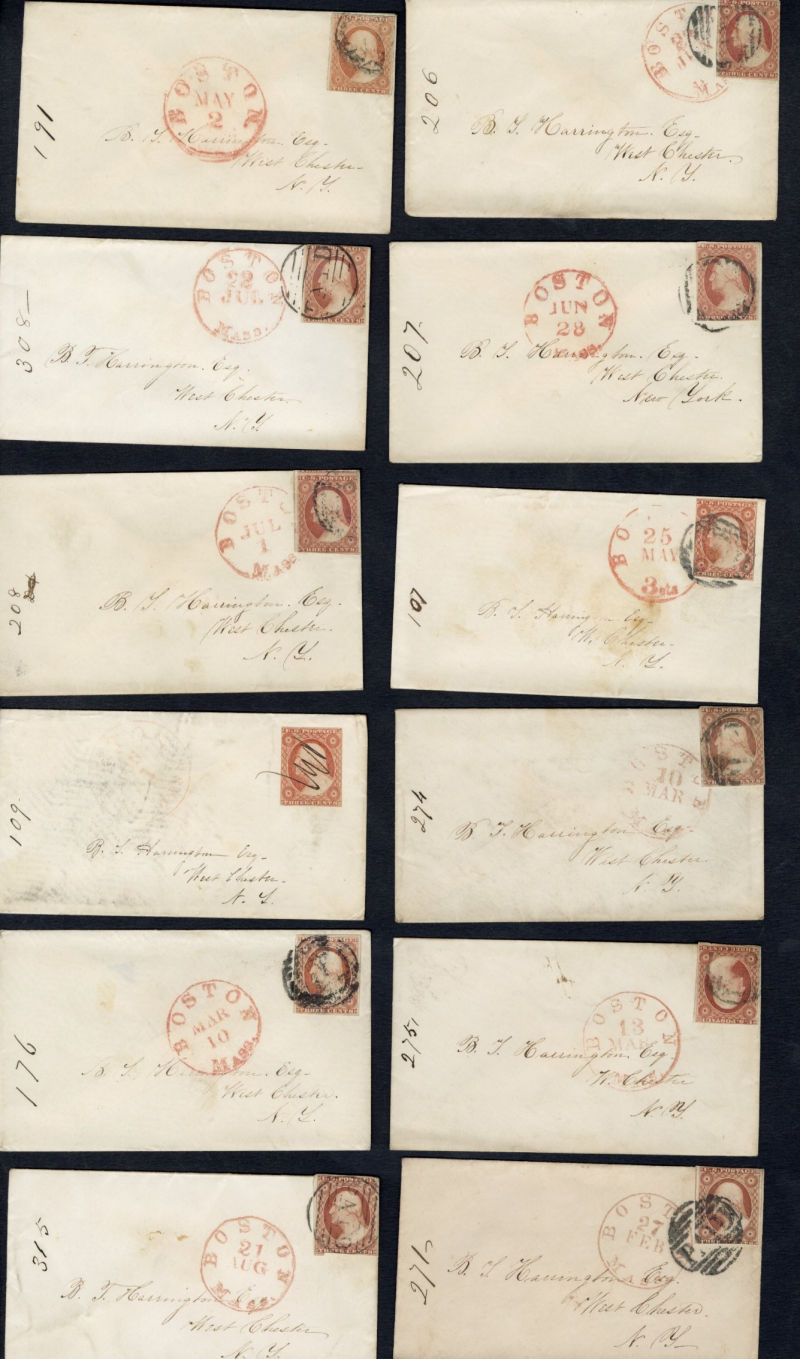 191
BOSTON
MAY
2
THREE CENTS
B. T. Harrington. Esq-
West Chester-
N. Y.
206
BOST
THREE CENTS
B. T. Harrington. Esq-
West Chester.
N. Y.
308-
BOSTO
22
JUL
MASS.
PAID
B. T. Harrington. Esq.
West Chester
N. Y.
207.
BOSTON
JUN
28
U.S. POSTAGE
THREE CENTS
B. T. Harrington. Esq.
West Chester.
New York.
208
BOSTO
JUL
1
MASS
U.S. POSTAGE
THREE CENTS
B. T. Harrington. Esq.
West Chester.
N. Y.
107
BO
25
MAY
3cts
U.S. POSTAGE
THREE CENTS
B. T. Harrington Esq-
W. Chester-
N. Y.
109.
U.S. POSTAGE
THREE CENTS
B. T. Harrington Esq-
West Chester-
N. Y.
274
OST
10
MAR
B. T. Harrington Esq-
West Chester
N. Y.
176
BOSTON
MAR
10
MASS.
THREE CENTS
B. T. Harrington. Esq-
West Chester.
N. Y.
275
BOSTON
13
MAR
U.S. POSTAGE
THREE CENTS
B. T. Harrington. Esq
W. Chester
N. Y.
315
BOSTON
21
AUG
MASS.
THREE CENTS
B. T. Harrington Esq-
West Chester
N. Y.
271
BOST
27
FEB
U.S. POSTAGE
B. T. Harrington. Esq.
West Chester.
N. Y-